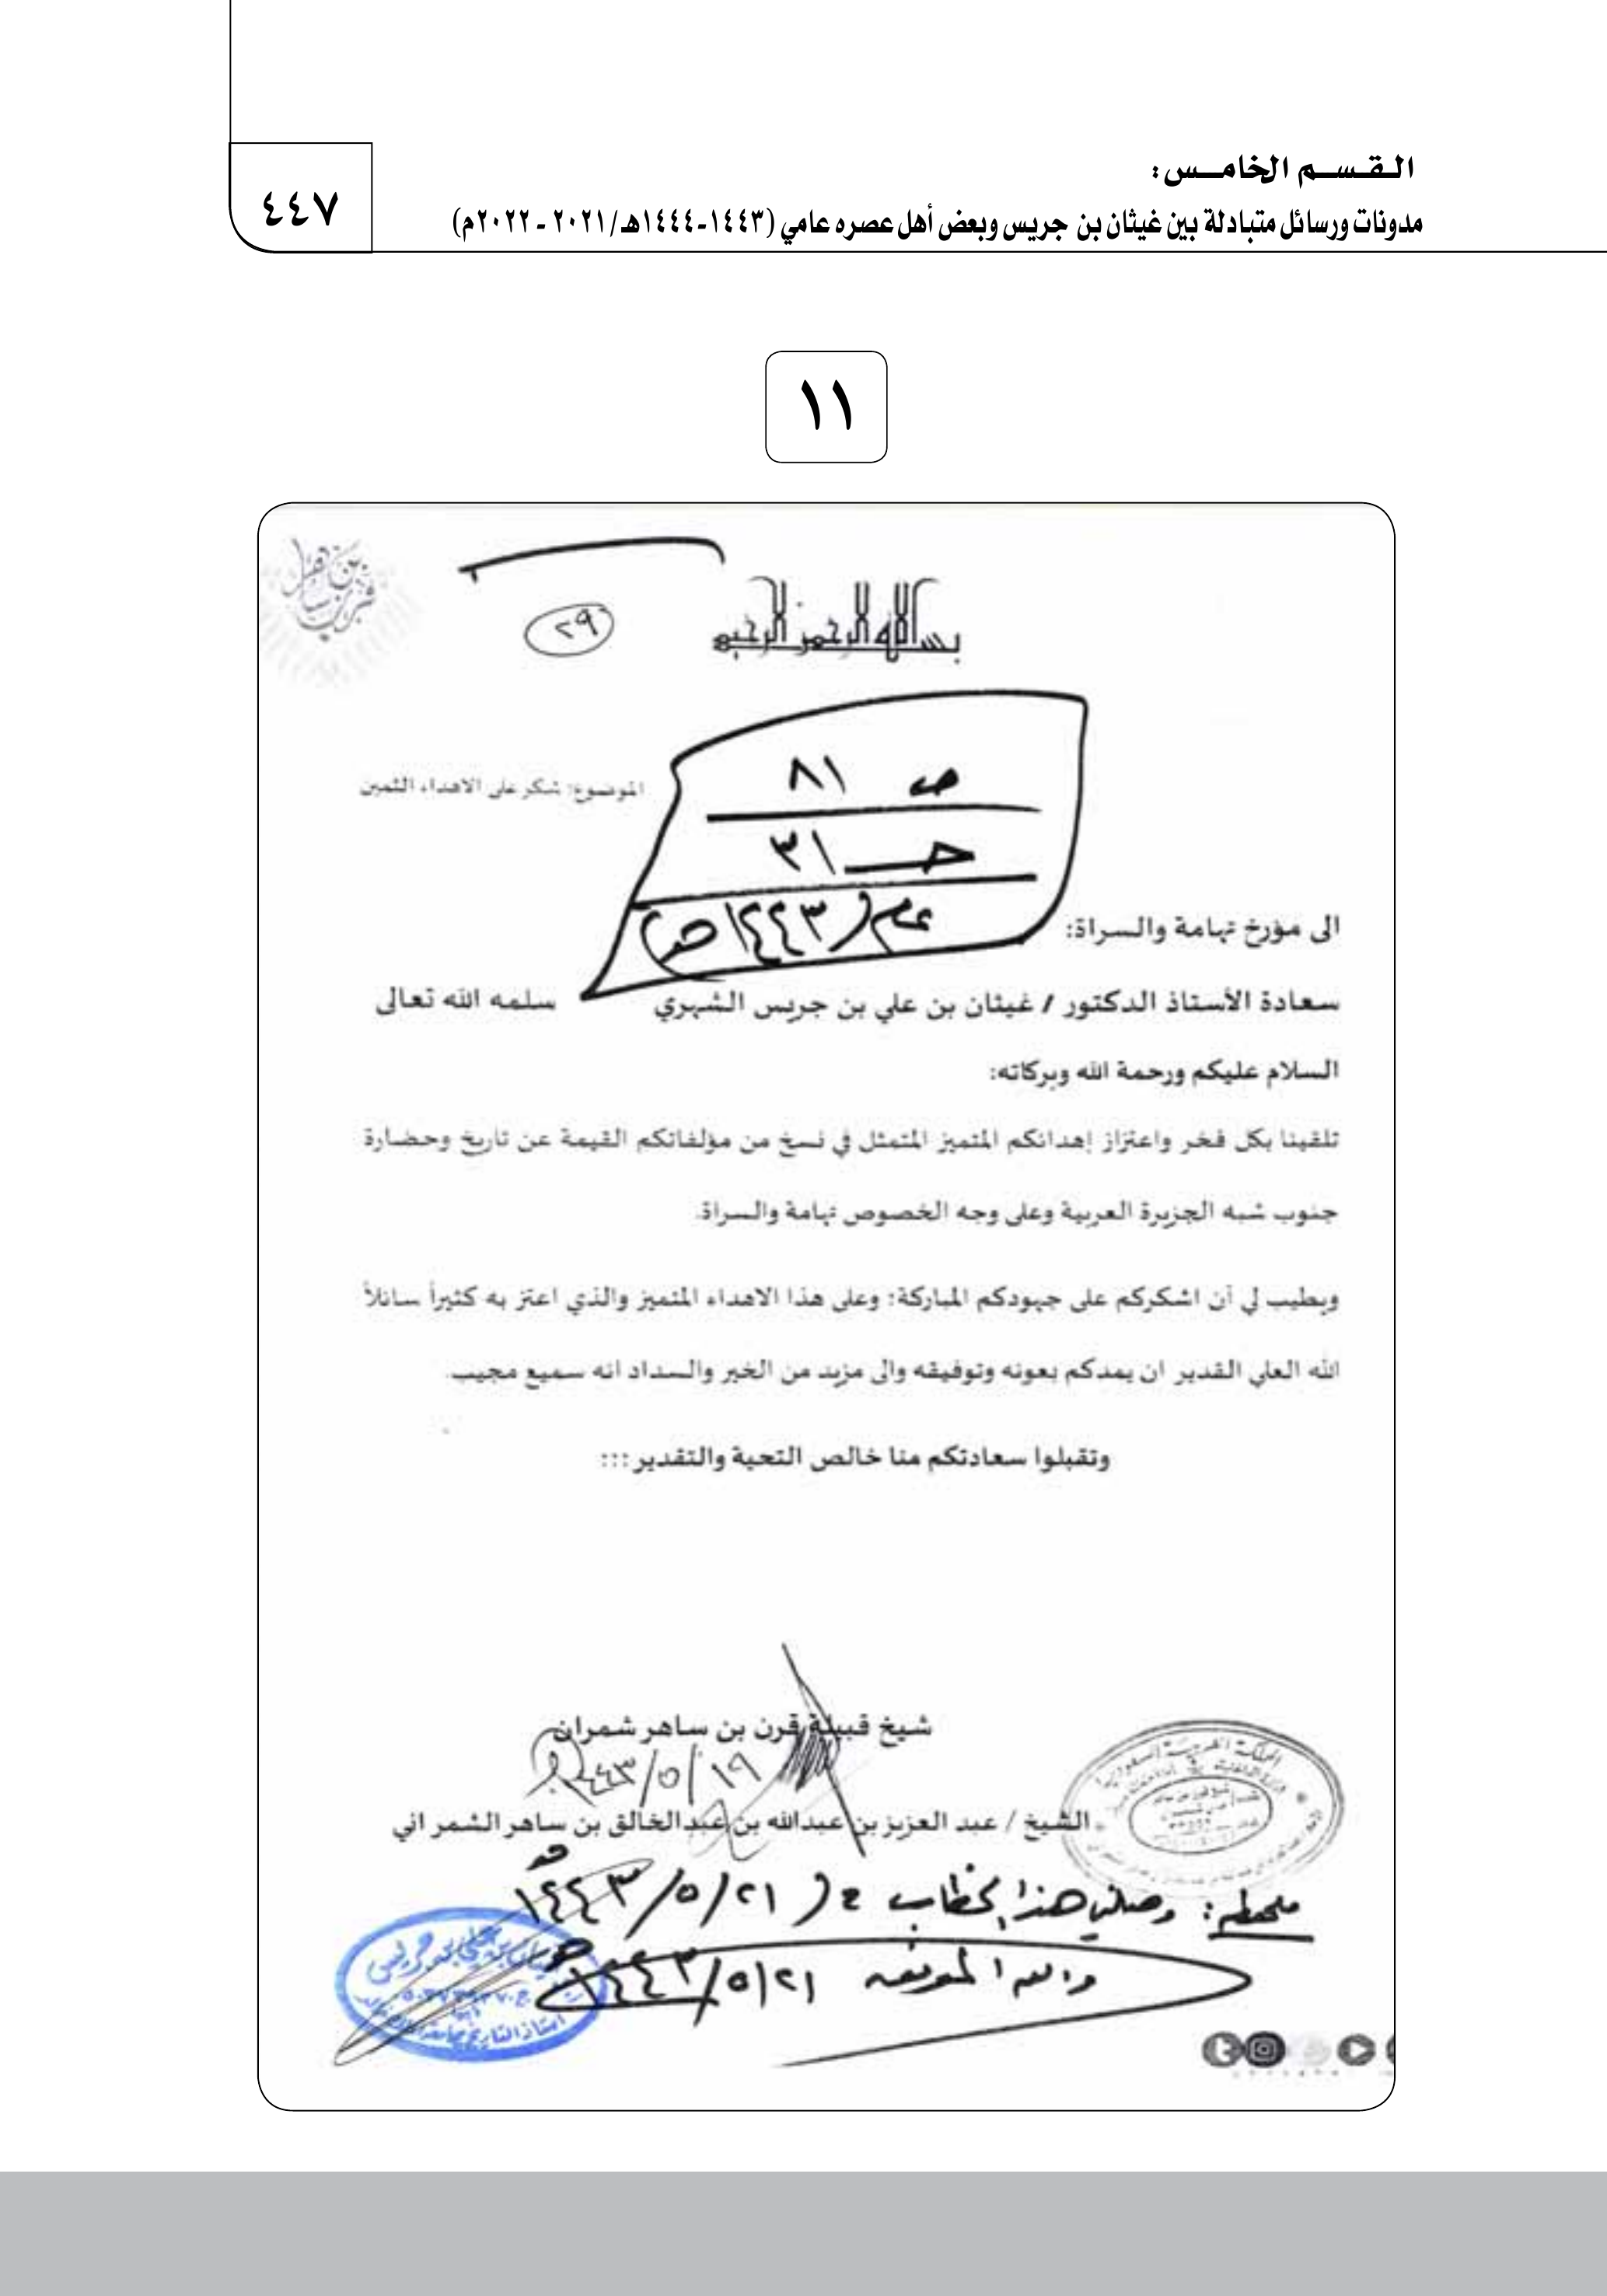 القسم الخامس:
مدونات ورسائل متبادلة بين غيثان بن جريس وبعض أهل عصره عامي (١٤٤٣-١٤٤٤هـ/٢٠٢١ - ٢٠٢٢م)
٤٤٧
١١
بسم الله الرحمن الرحيم
٢٩
ص ٨١
الموضوع: شكر على الاهداء الثمين
جـ ٣١
عام (١٤٤٣هـ)
الى مؤرخ تهامة والسراة:
سعادة الأستاذ الدكتور / غيثان بن علي بن جريس الشهري سلمه الله تعالى
السلام عليكم ورحمة الله وبركاته:
تلقينا بكل فخر واعتزاز إهدائكم المتميز المتمثل في نسخ من مؤلفاتكم القيمة عن تاريخ وحضارة
جنوب شبه الجزيرة العربية وعلى وجه الخصوص تهامة والسراة.
ويطيب لي أن اشكركم على جهودكم المباركة؛ وعلى هذا الاهداء المتميز والذي اعتز به كثيراً سائلاً
الله العلي القدير ان يمدكم بعونه وتوفيقه والى مزيد من الخير والسداد انه سميع مجيب.
وتقبلوا سعادتكم منا خالص التحية والتقدير:::
شيخ قبيلة قرن بن ساهر شمران
١٤٤٣/٥/١٩
المملكة العربية السعودية
الشيخ / عبد العزيز بن عبدالله بن عبدالخالق بن ساهر الشمراني
ملحوظة: وصلني هذا الخطاب في (١٤٤٣/٥/٢١هـ
والله الموفق ١٤٤٣/٥/٢١هـ
أستاذ التاريخ بجامعة الملك خالد